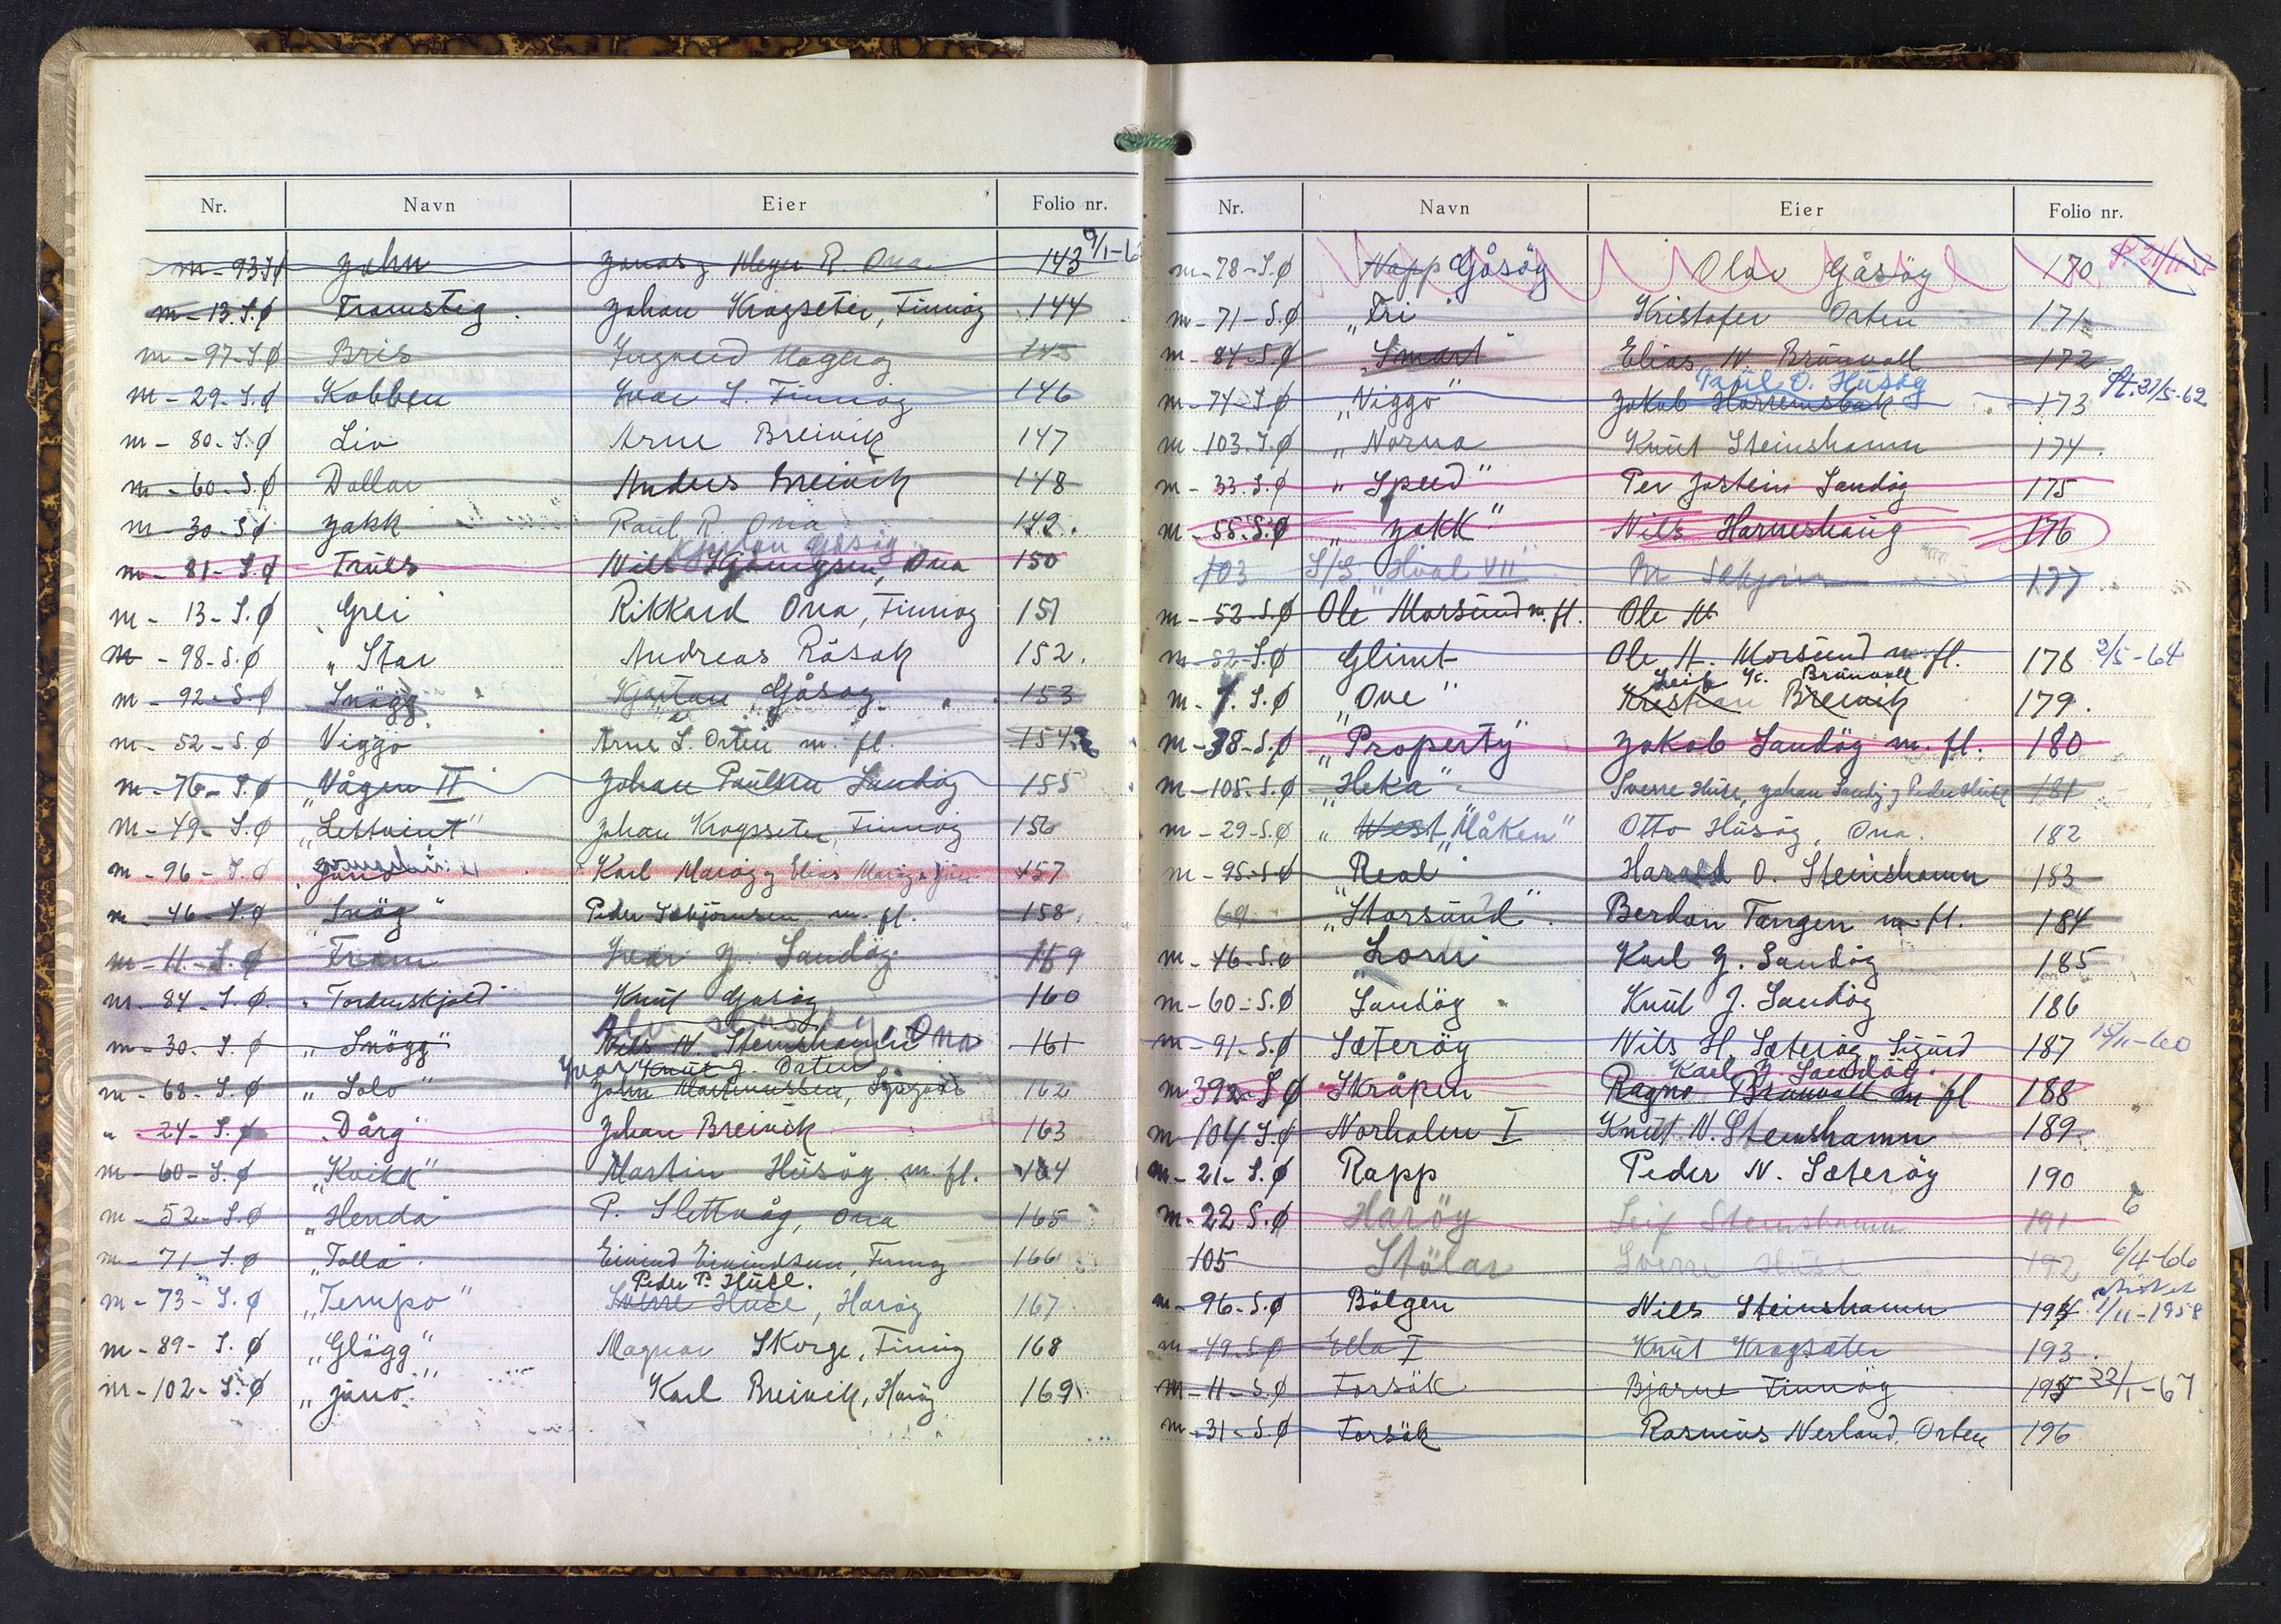 Nr. Navn Eier Folio nr.
m-93 S.Ø John Jonas J Meyer R. Ona 143 9/1-6
m-13.S.Ø Framstig Johan Krogseter, Finnöy 144
m-97-S.Ø Bris Magerøy 145
m-29.S.Ø Kobben Ivar S. Finnöy 146
m-80.S.Ø Liv Arne Breivik 147
m-60-S.Ø Dollar Anders Breivik 148
m-30-S.Ø Jakk Paul R. Ona 149.
Gåsöy
m-81-S.Ø Truls Nils Ona 150
m-13-S.Ø Grei Rikkard Ona, Finnøy 151
m-98-S.Ø "Star Andreas Råsok 152.
m-92-S.Ø Snögg Kjartan Gåsöy 153
m-52-S.Ø Viggo Arne S. Orten m. fl. 154
m-76-S.Ø "Vågen II Johan Paulsen Sandöy 155
m-49-S.Ø "Lettvint" Johan Krogsseter, Finnöy 156
m-96-S.Ø Juno Karl Maröy, Elias Maröy 157
m-46-S.Ø "Snög" Peder Sebjörnsen m. fl. 158
m-11-S.Ø Fram Ivar J. Sandöy 159
m-84-S.Ø. "Tordenskjold" Knut Gåsöy 160
m-30-S.Ø "Snögg" Nils N. Steinshamn Ona 161
Ivar Knut J. Oaten
m-68-S.Ø "Solo" John Martinussen, 162
" 24-S.Ø "Dårg" Johan Breivik 163
m-60-S.Ø "Kvikk" Martin Húsöy m. fl. 164
m-52-S.Ø "Henda" P. Slettvåg, Ona 165
m-71-S.Ø "Tolla" Eivind Eivindsen, Finnøy 166
Peder P. Húse.
m-73-S.Ø "Tempo" Sverre Húse, Haröy 167
m-89-S.Ø "Glögg" Magnar Skorge, Finnöy 168
m-102-S.Ø "Juno" Karl Breivik, Haröy 169
Nr. Navn Eier Folio nr.
m-78-S.Ø Napp Gåsöy Olav Gåsöy 170
m-71-S.Ø "Fri" Kristofer Orten 171
m-84-S.Ø "Smart" Elias N Brunvoll 172
Paul O. Húsöy
m-74-S.Ø "Viggo" Jakob Harremsbak 173 31/5-62
m-103.S.Ø "Norna Knut Steinshamn 174.
m-33.S.Ø "Speed" Per Jostein Sandöy 175
m-55.S.Ø "Jakk" Nils Harneshaug 176
103 S/S "Hval VII" M 177
m-52-S.Ø Ole Morsund m. fl. Ole M
m-52-S.Ø Glimt Ole H. Morsund m. fl. 178 2/5-64
Leif K. Brunvoll
m-7.S.Ø "Ove" Kristian Breivik 179.
m-38-S.Ø "Property" Jakob Sandöy m. fl. 180
m-105.S.Ø "Heka" Sverre Húse, Johan Sandöy, Peder Húse 181
m-29-S.Ø "West, "Måken" Otto Húsöy, Ona. 182
m-95-S.Ø "Real" Harald O. Steinshamn 183
69 "Storsund". Berdon Tangen m fl. 184
m-46-S.Ø "Lorn Karl J. Sandöy 185
m-60-S.Ø Sandöy Knut J. Sandöy 186
m-91-S.Ø Sæteröy Nils H. Sæteröy, Sigurd 187 15/11-60
Karl J. Sandöy.
m 39-S.Ø Skråpen Ragnv. Brunvoll m fl 188
m-104.S.Ø Norholm I Knut N. Steinshamn 189.
m-21-S.Ø Rapp Peder N. Sæteröy 190
m-22 S.Ø Haröy Leif Steinshamn 191 6
105 Stölar Sverre Húse 192 6/4-66
m-96-S.Ø Bölgen Nils Steinshamn 194 1/11-1958
m-49.S.Ø Ella I Knut Krogsæter 193
m-11-S.Ø Forsök Bjarne Finnöy 195 22/1-67
m-31-S.Ø Forsök Rasmus Nerland, Orten 196